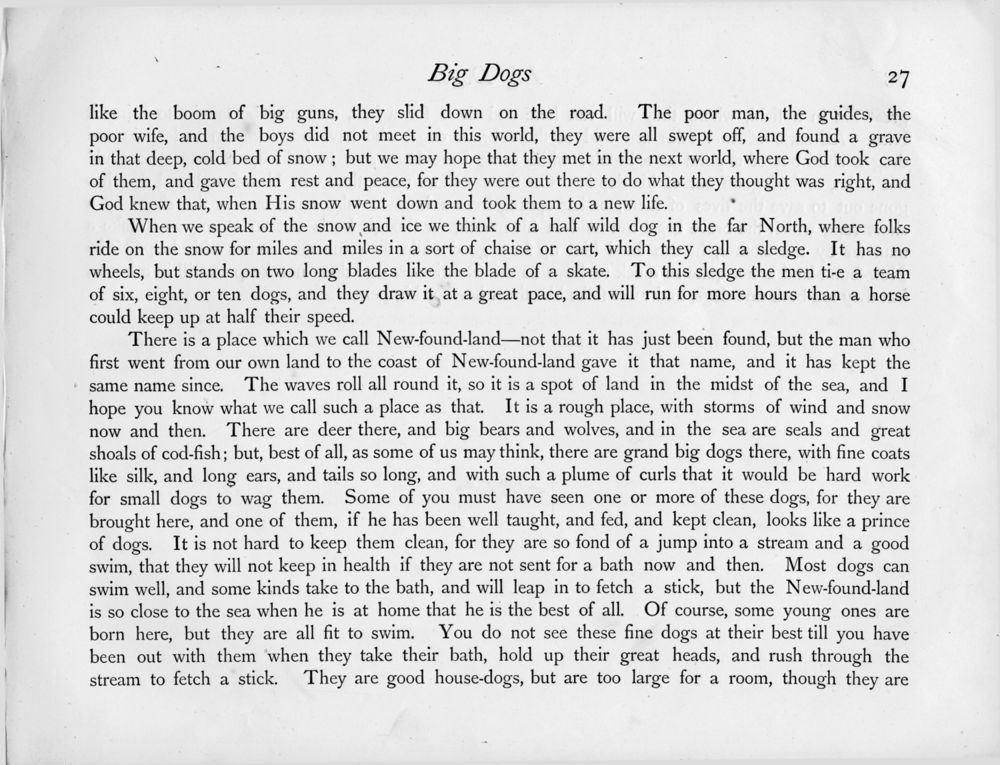 Big Dogs 27
like the boom of big guns, they slid down on the road. The poor man, the guides, the
poor wife, and the boys did not meet in this world, they were all swept off, and found a grave
in that deep, cold bed of snow; but we may hope that they met in the next world, where God took care
of them, and gave them rest and peace, for they were out there to do what they thought was right, and
God knew that, when His snow went down and took them to a new life.
When we speak of the snow and ice we think of a half wild dog in the far North, where folks
ride on the snow for miles and miles in a sort of chaise or cart, which they call a sledge. It has no
wheels, but stands on two long blades like the blade of a skate. To this sledge the men ti-e a team
of six, eight, or ten dogs, and they draw it at a great pace, and will run for more hours than a horse
could keep up at half their speed.
There is a place which we call New-found-land—not that it has just been found, but the man who
first went from our own land to the coast of New-found-land gave it that name, and it has kept the
same name since. The waves roll all round it, so it is a spot of land in the midst of the sea, and I
hope you know what we call such a place as that. It is a rough place, with storms of wind and snow
now and then. There are deer there, and big bears and wolves, and in the sea are seals and great
shoals of cod-fish; but, best of all, as some of us may think, there are grand big dogs there, with fine coats
like silk, and long ears, and tails so long, and with such a plume of curls that it would be hard work
for small dogs to wag them. Some of you must have seen one or more of these dogs, for they are
brought here, and one of them, if he has been well taught, and fed, and kept clean, looks like a prince
of dogs. It is not hard to keep them clean, for they are so fond of a jump into a stream and a good
swim, that they will not keep in health if they are not sent for a bath now and then. Most dogs can
swim well, and some kinds take to the bath, and will leap in to fetch a stick, but the New-found-land
is so close to the sea when he is at home that he is the best of all. Of course, some young ones are
born here, but they are all fit to swim. You do not see these fine dogs at their best till you have
been out with them when they take their bath, hold up their great heads, and rush through the
stream to fetch a stick. They are good house-dogs, but are too large for a room, though they are